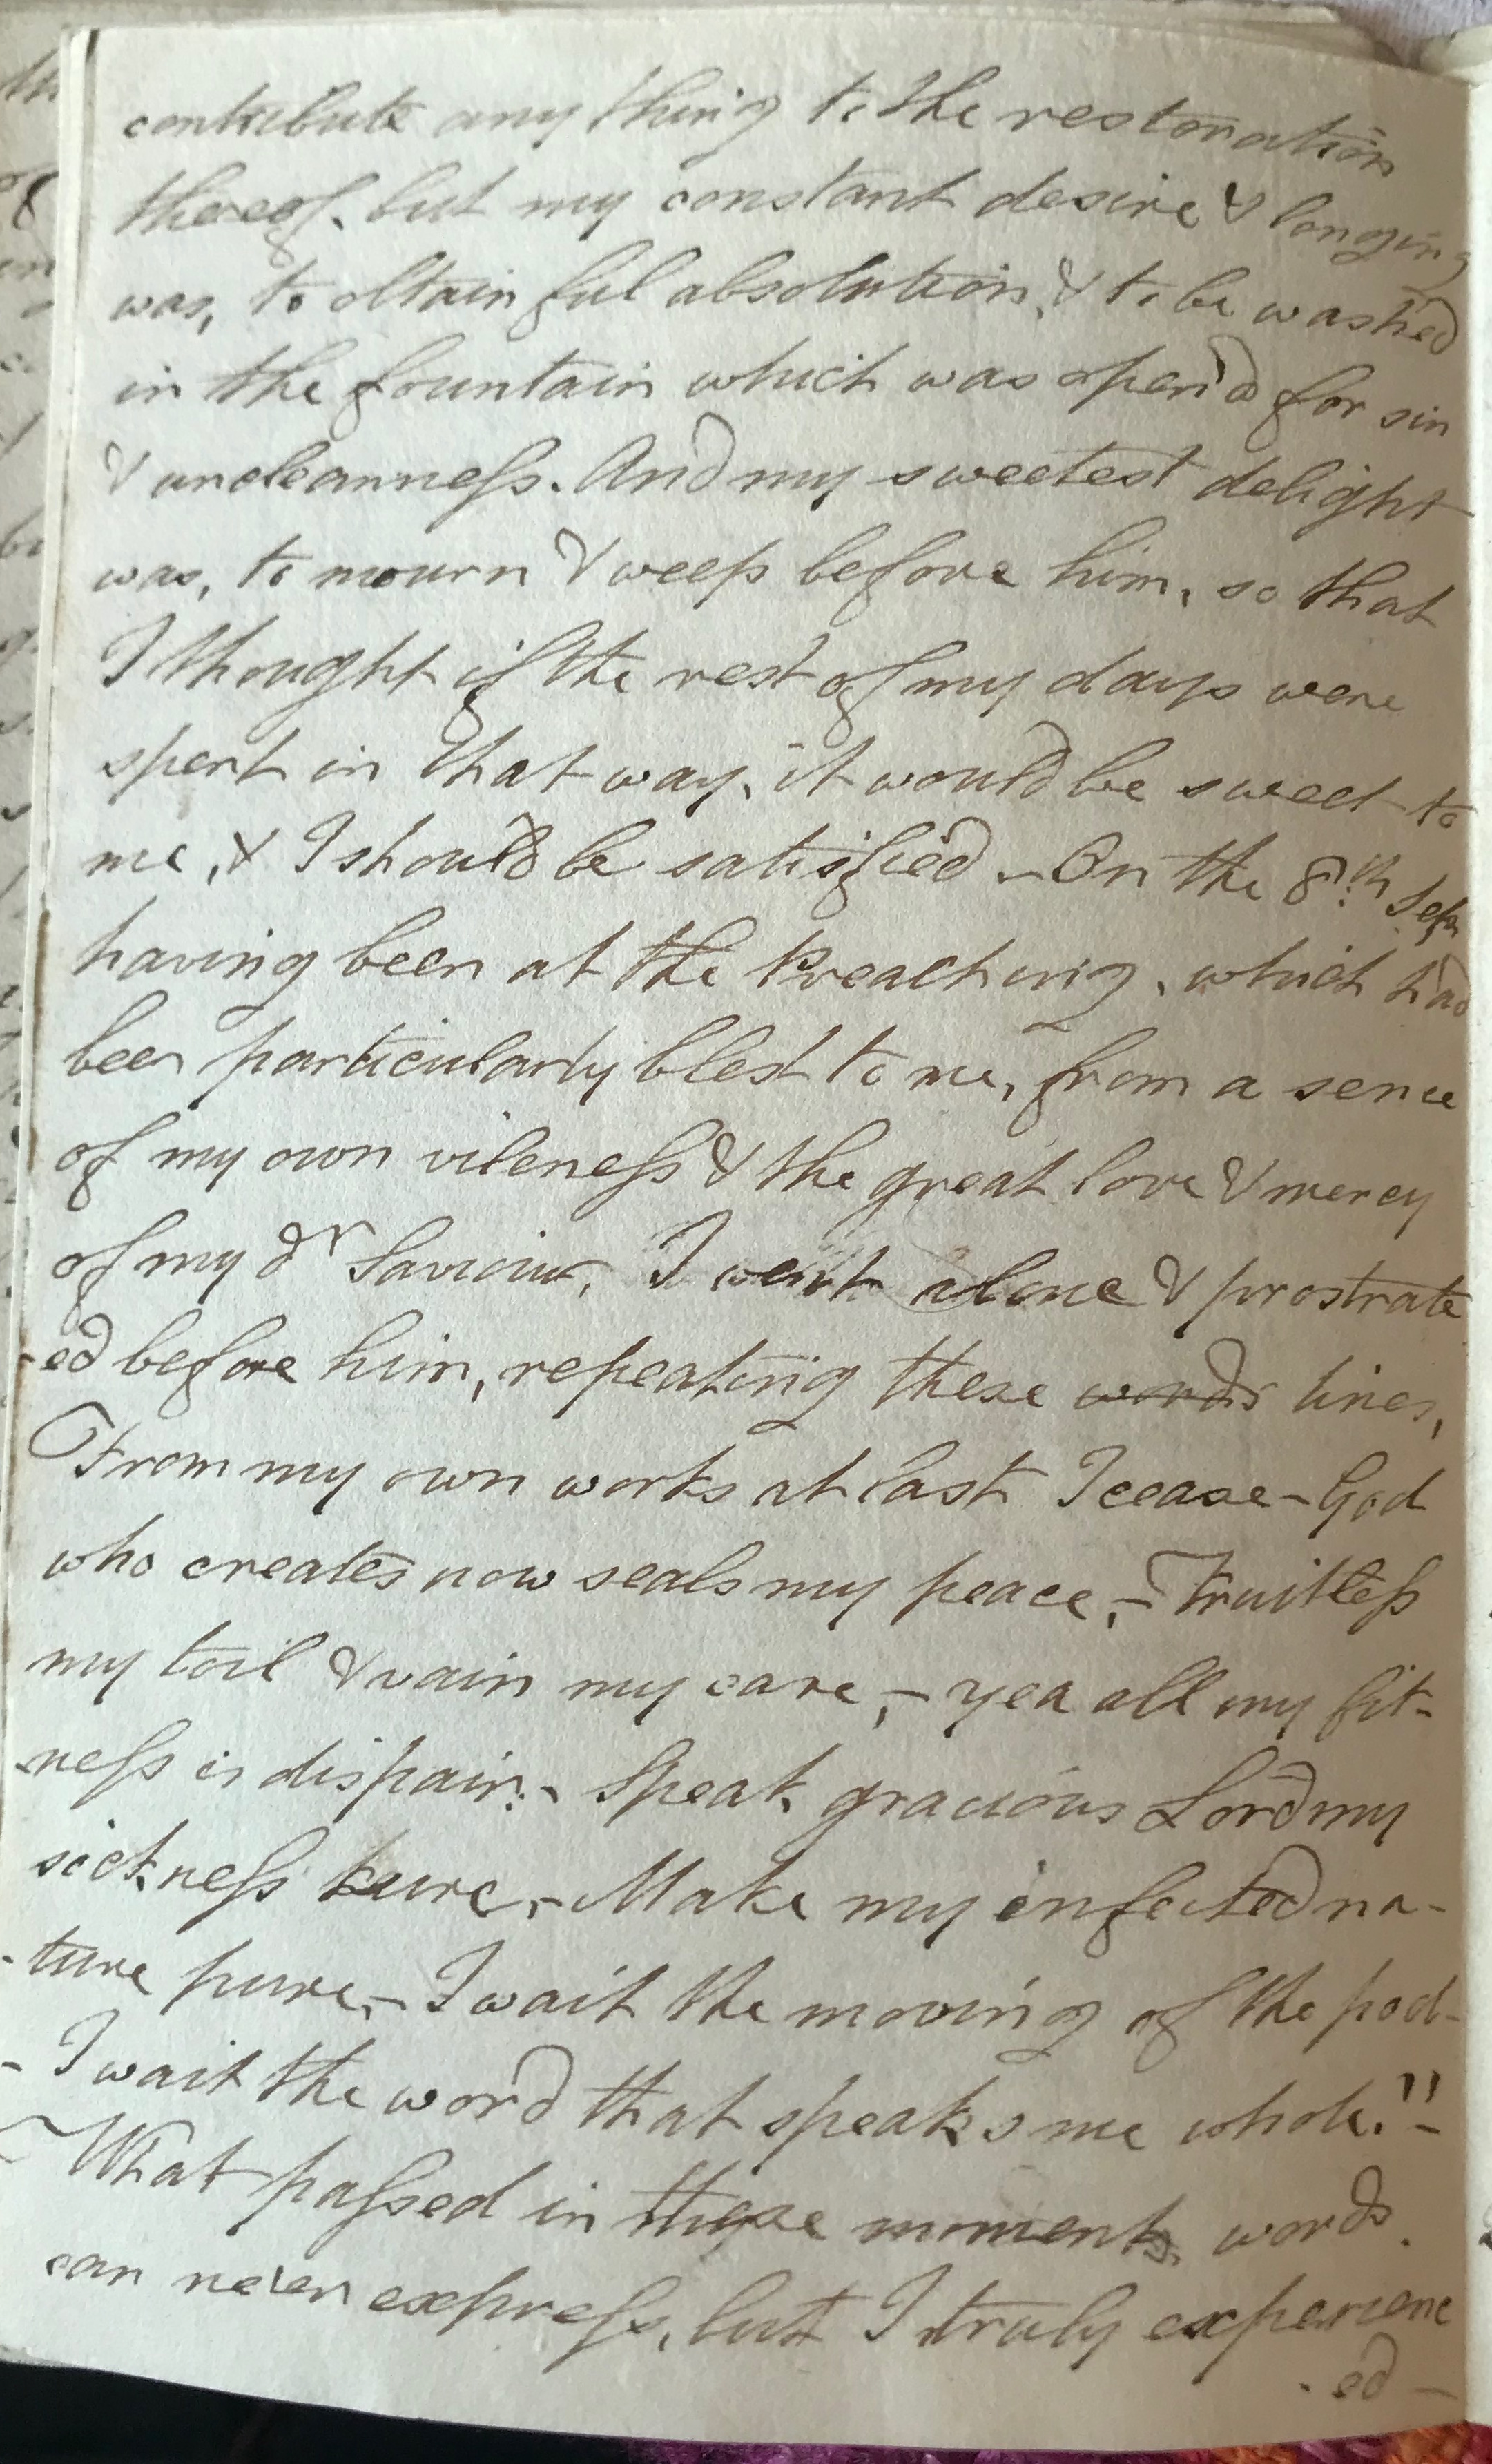 contribute any thing to the restoration
thereof. but my constant desire & longing
was, to obtain ful absolution, & to be washed
in the fountain which was open'd for sin
& uncleanness. And my sweetest delight
was, to mourn & weep before him, so that
I thought if the rest of my days were
spent in that way, it would be sweet to
me, & I should be satisfied - On the 8th Sepr
having been at the Preaching, which had
been particularly blest to me, from a sence
of my own vileness & the great love & mercy
of my dr Saviour, I went alone & prostrate
-ed before him, repeating these words lines,
From my own works at last I cease - God
who creates now seals my peace, - Fruitless
my toil & vain my care, - yea all my fit-
-ness is dispair: - Speak gracious Lord my
sickness kure, - Make my infected na-
-ture pure, - I wait the moving of the pool -
- I wait the word that speaks me whole." -
What passed in these moments words
can ne'er express, but I truly experienc
-ed -